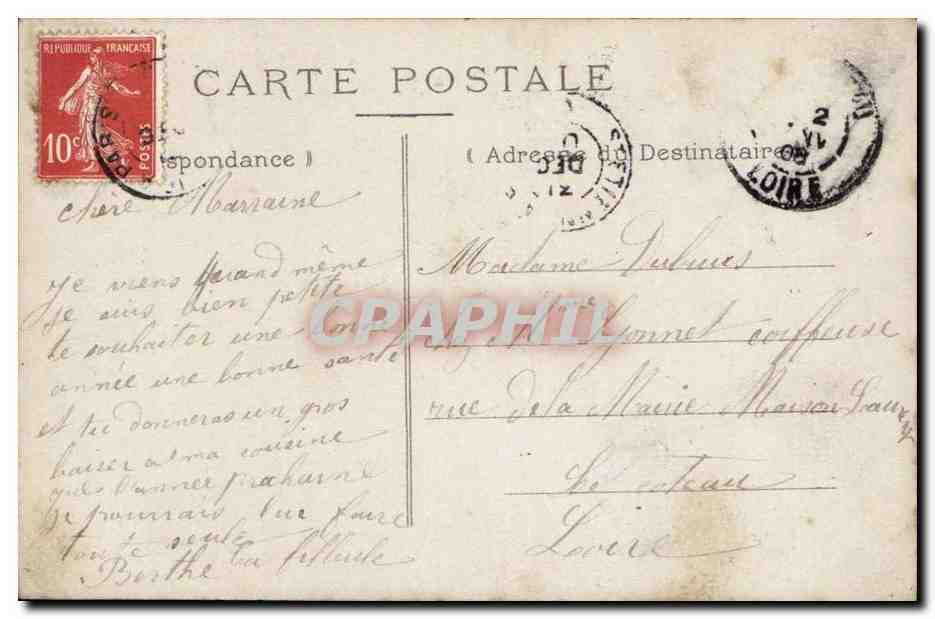 REPUBLIQUE FRANÇAISE
10c
POSTES
CARTE POSTALE
spondance )
( Adresse du Destinataire
PARIS
DEC
LOIRE
chère Marraine
je viens quand même
je suis bien petite
te souhaiter une bonne
année une bonne santé
et tu donneras un gros
baiser a ma cousine
que l'année prochaine
je pourrais lui faire
toute seule
Berthe ta filleule
Madame
Lyonnet coiffeuse
rue de la Mairie Maison
Le coteau
Loire
CPAPHIL